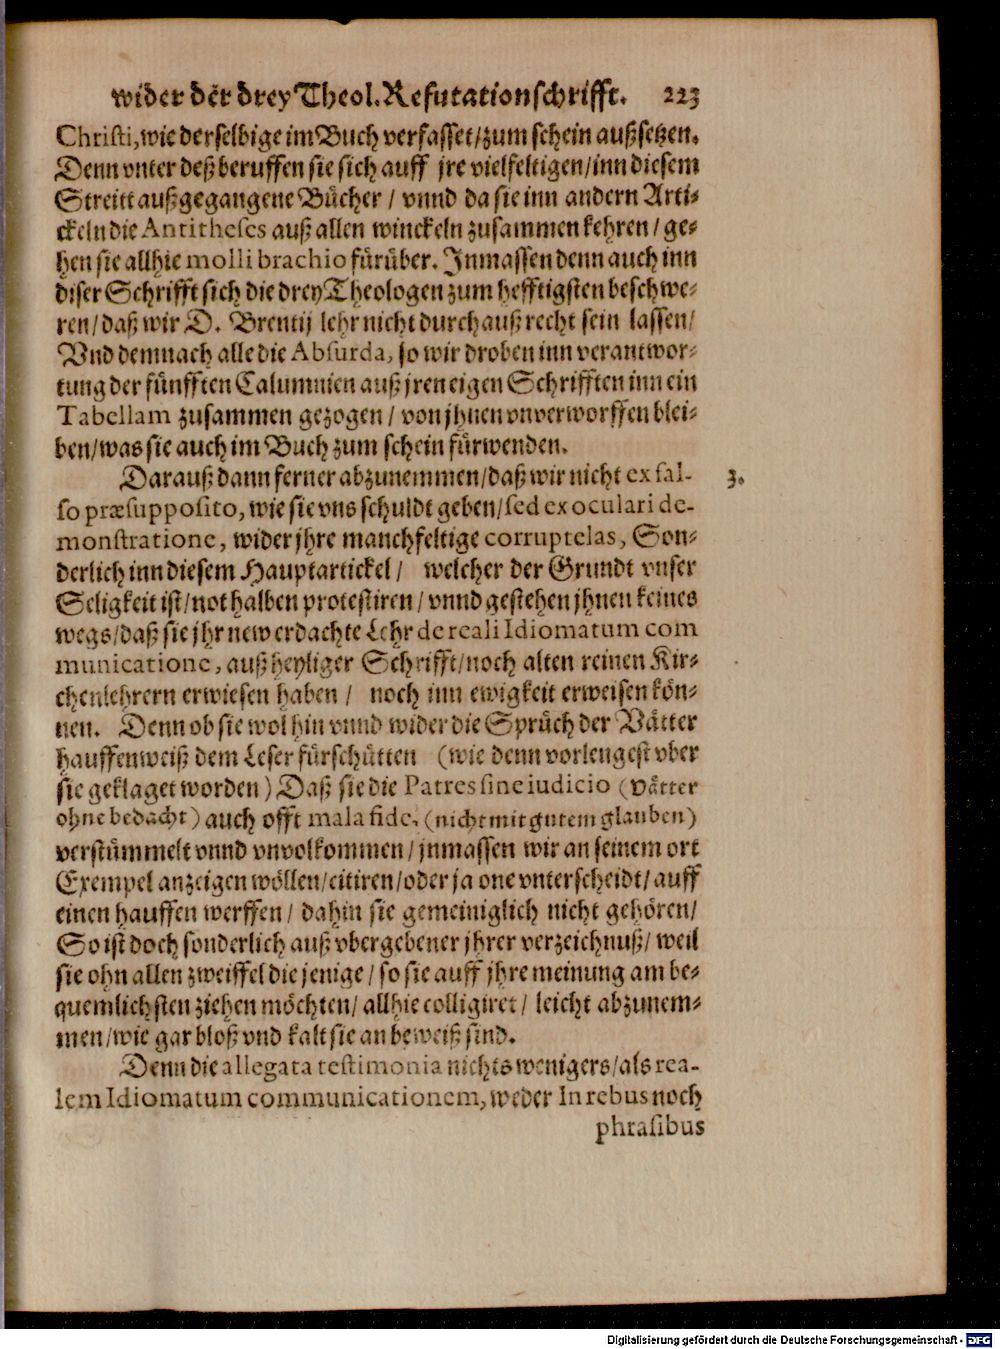 wider der drey Theol. Refutationschrifft. 223
Christi, wie derselbige im Buch verfasset/zum schein außsetzen.
Denn vnter deß beruffen sie sich auff jre vielfeltigen/inn diesem
Streitt außgegangene Bücher / vnnd da sie inn andern Arti-
ckeln die Antitheses auß allen winckeln zusammen kehren / ge-
hen sie allhie molli brachio fürüber. Inmassen denn auch inn
diser Schrifft sich die drey Theologen zum hefftigsten beschwe-
ren/daß wir D. Brentij lehr nicht durchauß recht sein lassen/
Vnd demnach alle die Absurda, so wir droben inn verantwor-
tung der fünfften Calumnien auß jren eigen Schrifften inn ein
Tabellam zusammen gezogen / von jhnen vnverworffen blei-
ben/was sie auch im Buch zum schein fürwenden.
Darauß dann ferner abzunemmen/daß wir nicht ex fal- 3.
so præsupposito, wie sie vns schuldt geben/sed ex oculari de-
monstratione, wider jhre manchfeltige corruptelas, Son-
derlich inn diesem Hauptartickel / welcher der Grundt vnser
Seligkeit ist/not halben protestiren / vnnd gestehen jhnen keines
wegs/daß sie jhr new erdachte Lehr de reali Idiomatum com
municatione, auß heyliger Schrifft/noch alten reinen Kir-
chenlehrern erwiesen haben / noch inn ewigkeit erweisen kön-
nen. Denn ob sie wol hin vnnd wider die Sprüch der Vätter
hauffenweiß dem Leser fürschütten (wie denn vorlengest vber
sie geklaget worden) Daß sie die Patres sine iudicio (Vätter
ohne bedacht) auch offt mala fide, (nicht mit gutem glauben)
verstümmelt vnnd vnvolkommen / jnmassen wir an seinem ort
Exempel anzeigen wöllen/citiren/oder ja one vnterscheidt/auff
einen hauffen werffen / dahin sie gemeiniglich nicht gehören/
So ist doch sonderlich auß vbergebener jhrer verzeichnuß/ weil
sie ohn allen zweiffel die jenige / so sie auff jhre meinung am be-
quemlichsten ziehen möchten/ allhie colligiret / leicht abzunem-
men/wie gar bloß vnd kalt sie an beweiß sind.
Denn die allegata testimonia nichts wenigers/als rea-
lem Idiomatum communicationem, weder In rebus noch
phrasibus
Digitalisierung gefördert durch die Deutsche Forschungsgemeinschaft - DFG